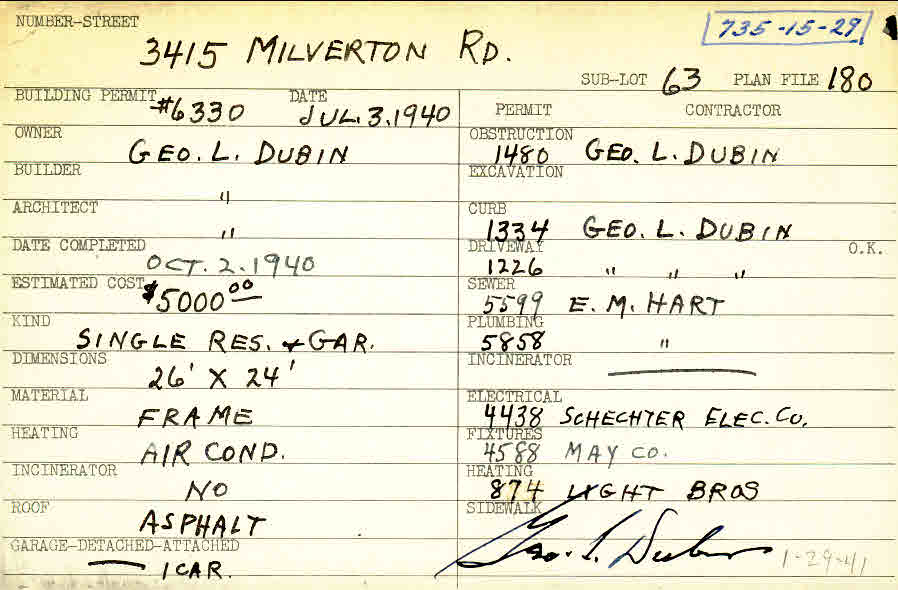 NUMBER-STREET
735-15-29
3415 MILVERTON RD.
SUB-LOT 63 PLAN FILE 180
BUILDING PERMIT #6330 DATE JUL. 3. 1940
PERMIT CONTRACTOR
OWNER GEO. L. DUBIN
OBSTRUCTION 1480 GEO. L. DUBIN
BUILDER "
EXCAVATION
ARCHITECT "
CURB 1334 GEO. L. DUBIN
DATE COMPLETED OCT. 2. 1940
DRIVEWAY 1226 " " " O.K.
ESTIMATED COST $5000 00
SEWER 5599 E. M. HART
KIND SINGLE RES. & GAR.
PLUMBING 5858 "
DIMENSIONS 26' X 24'
INCINERATOR —
MATERIAL FRAME
ELECTRICAL 4438 SCHECHTER ELEC. CO.
HEATING AIR COND.
FIXTURES 4588 MAY CO.
INCINERATOR NO
HEATING 874 LIGHT BROS
ROOF ASPHALT
SIDEWALK Geo. L. Dubin 1-29-41
GARAGE-DETACHED-ATTACHED — 1 CAR.